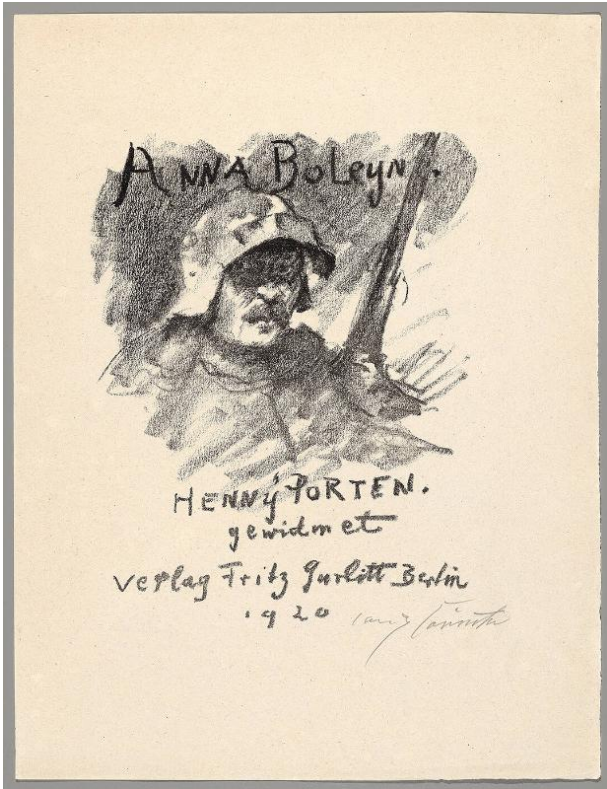 ANNA BOLEYN.
HENNY PORTEN.
gewidmet
Verlag Fritz Gurlitt Berlin
1920 Lovis Corinth